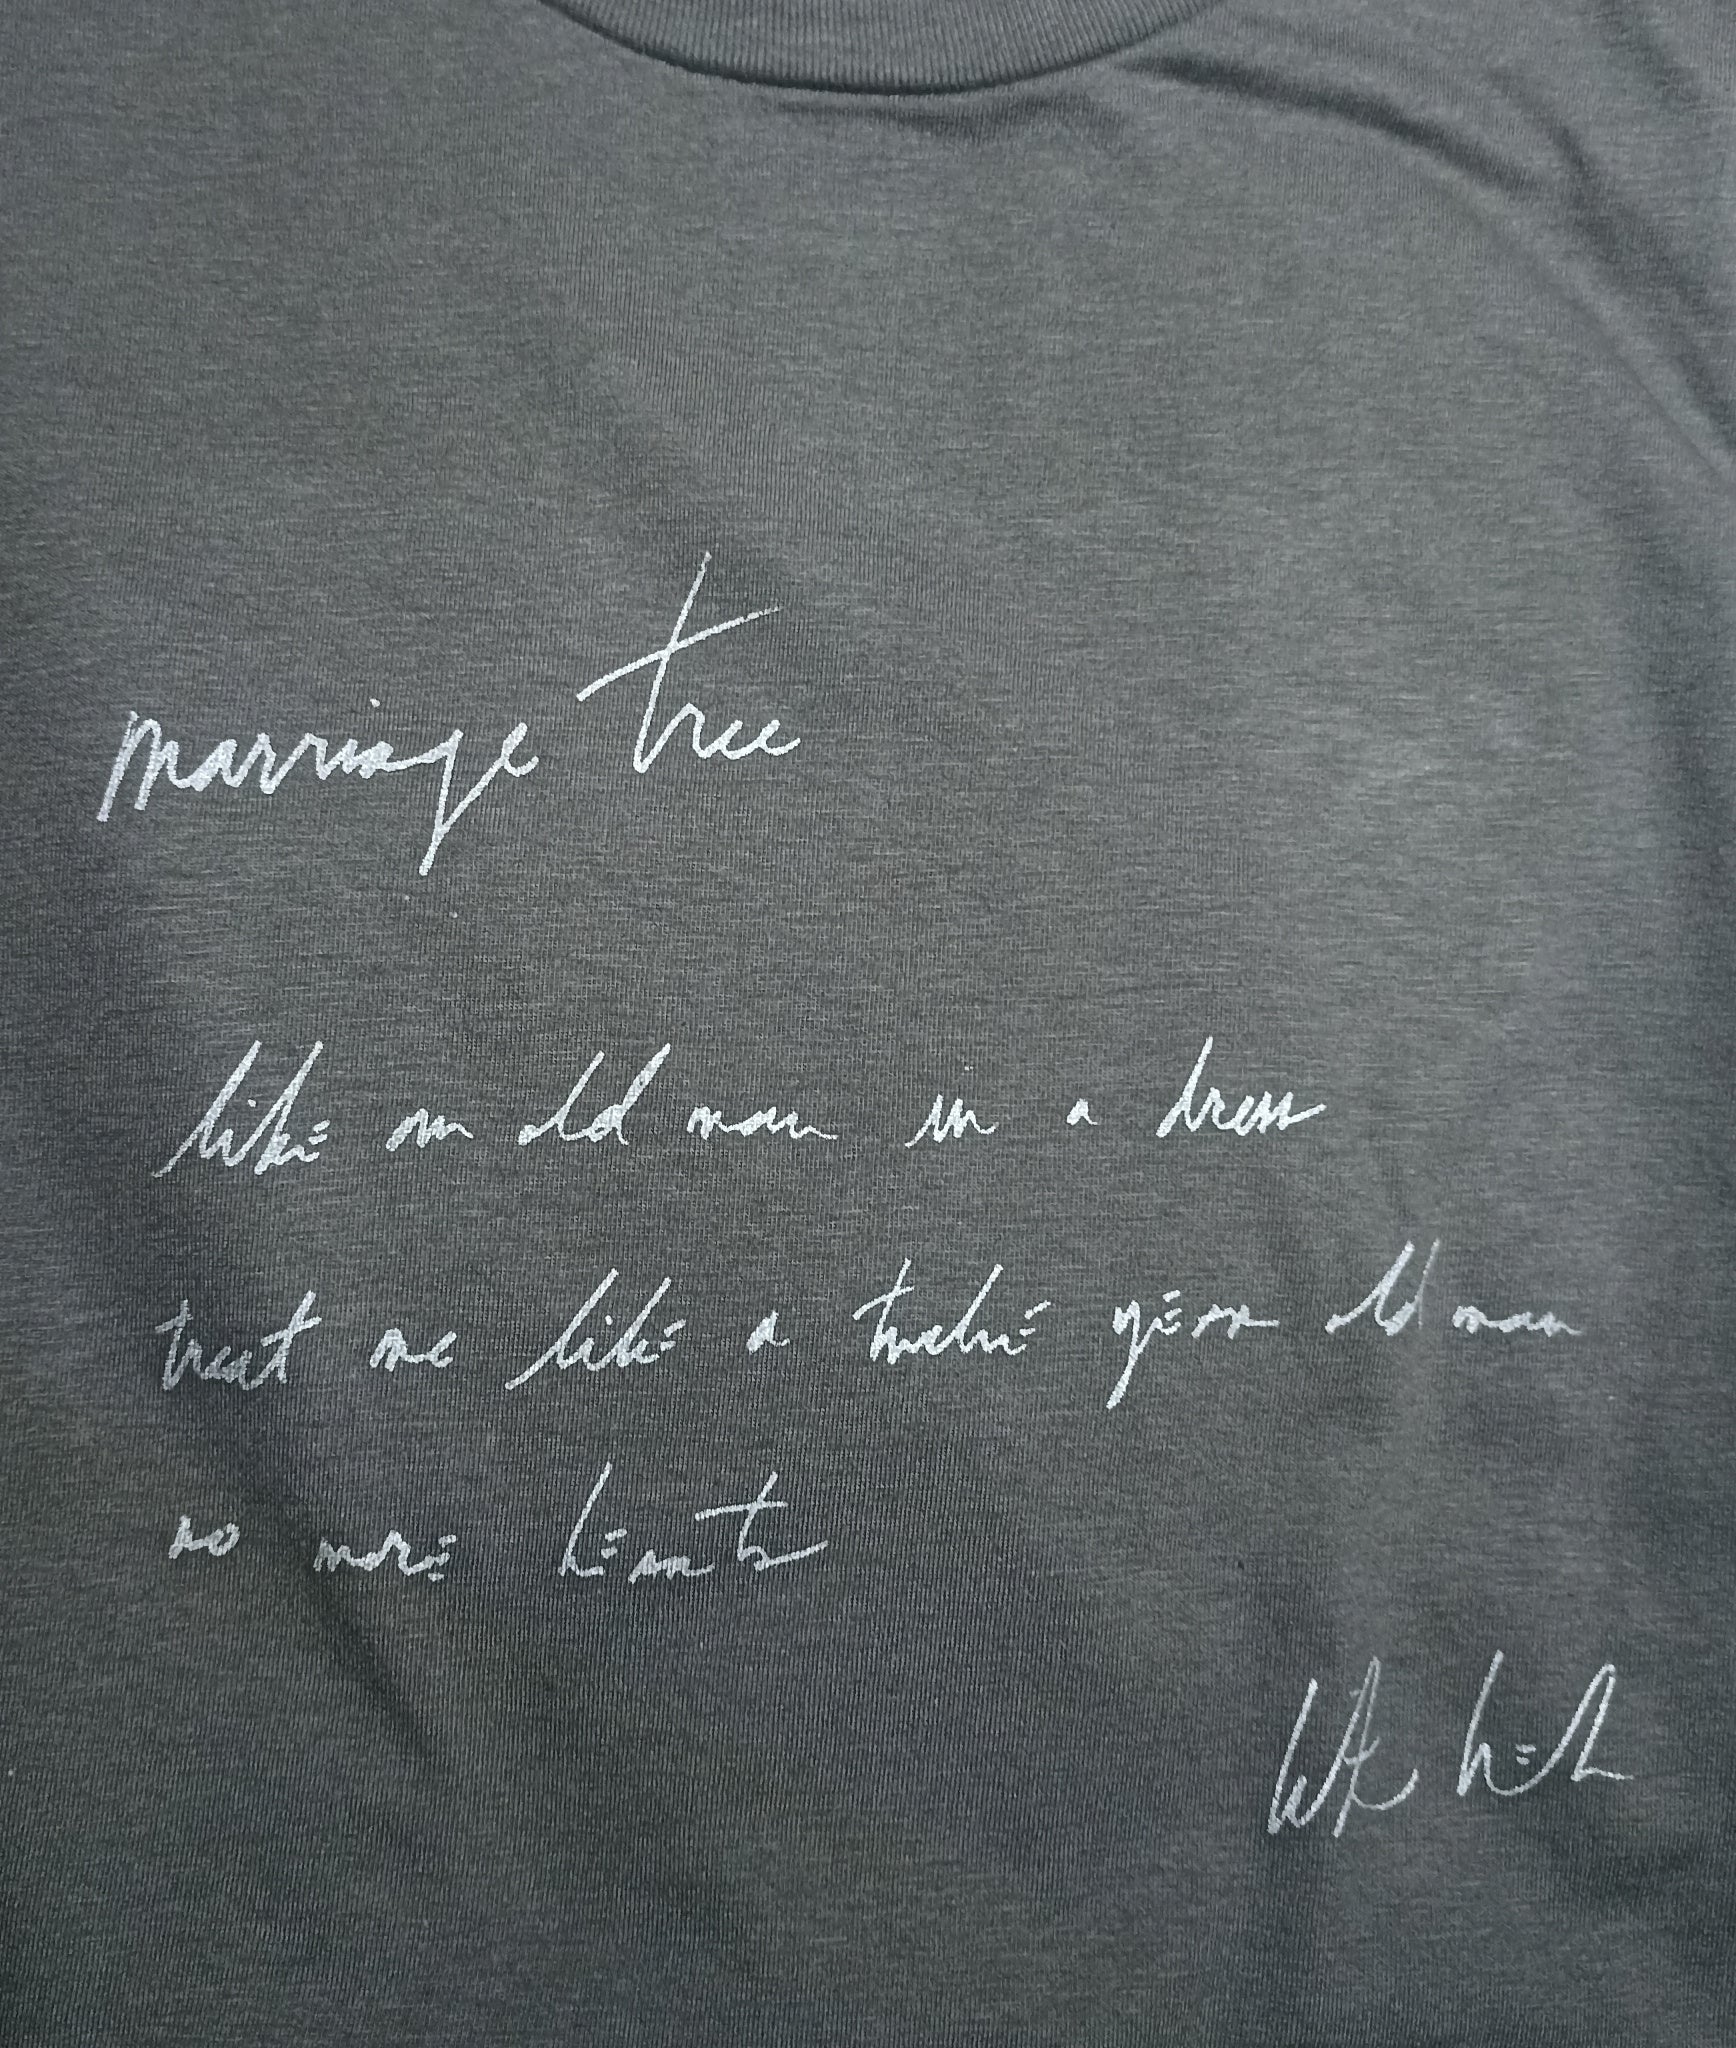 marriage tree
like an old man in a dress
treat me like a twelve year old man
no more hearts